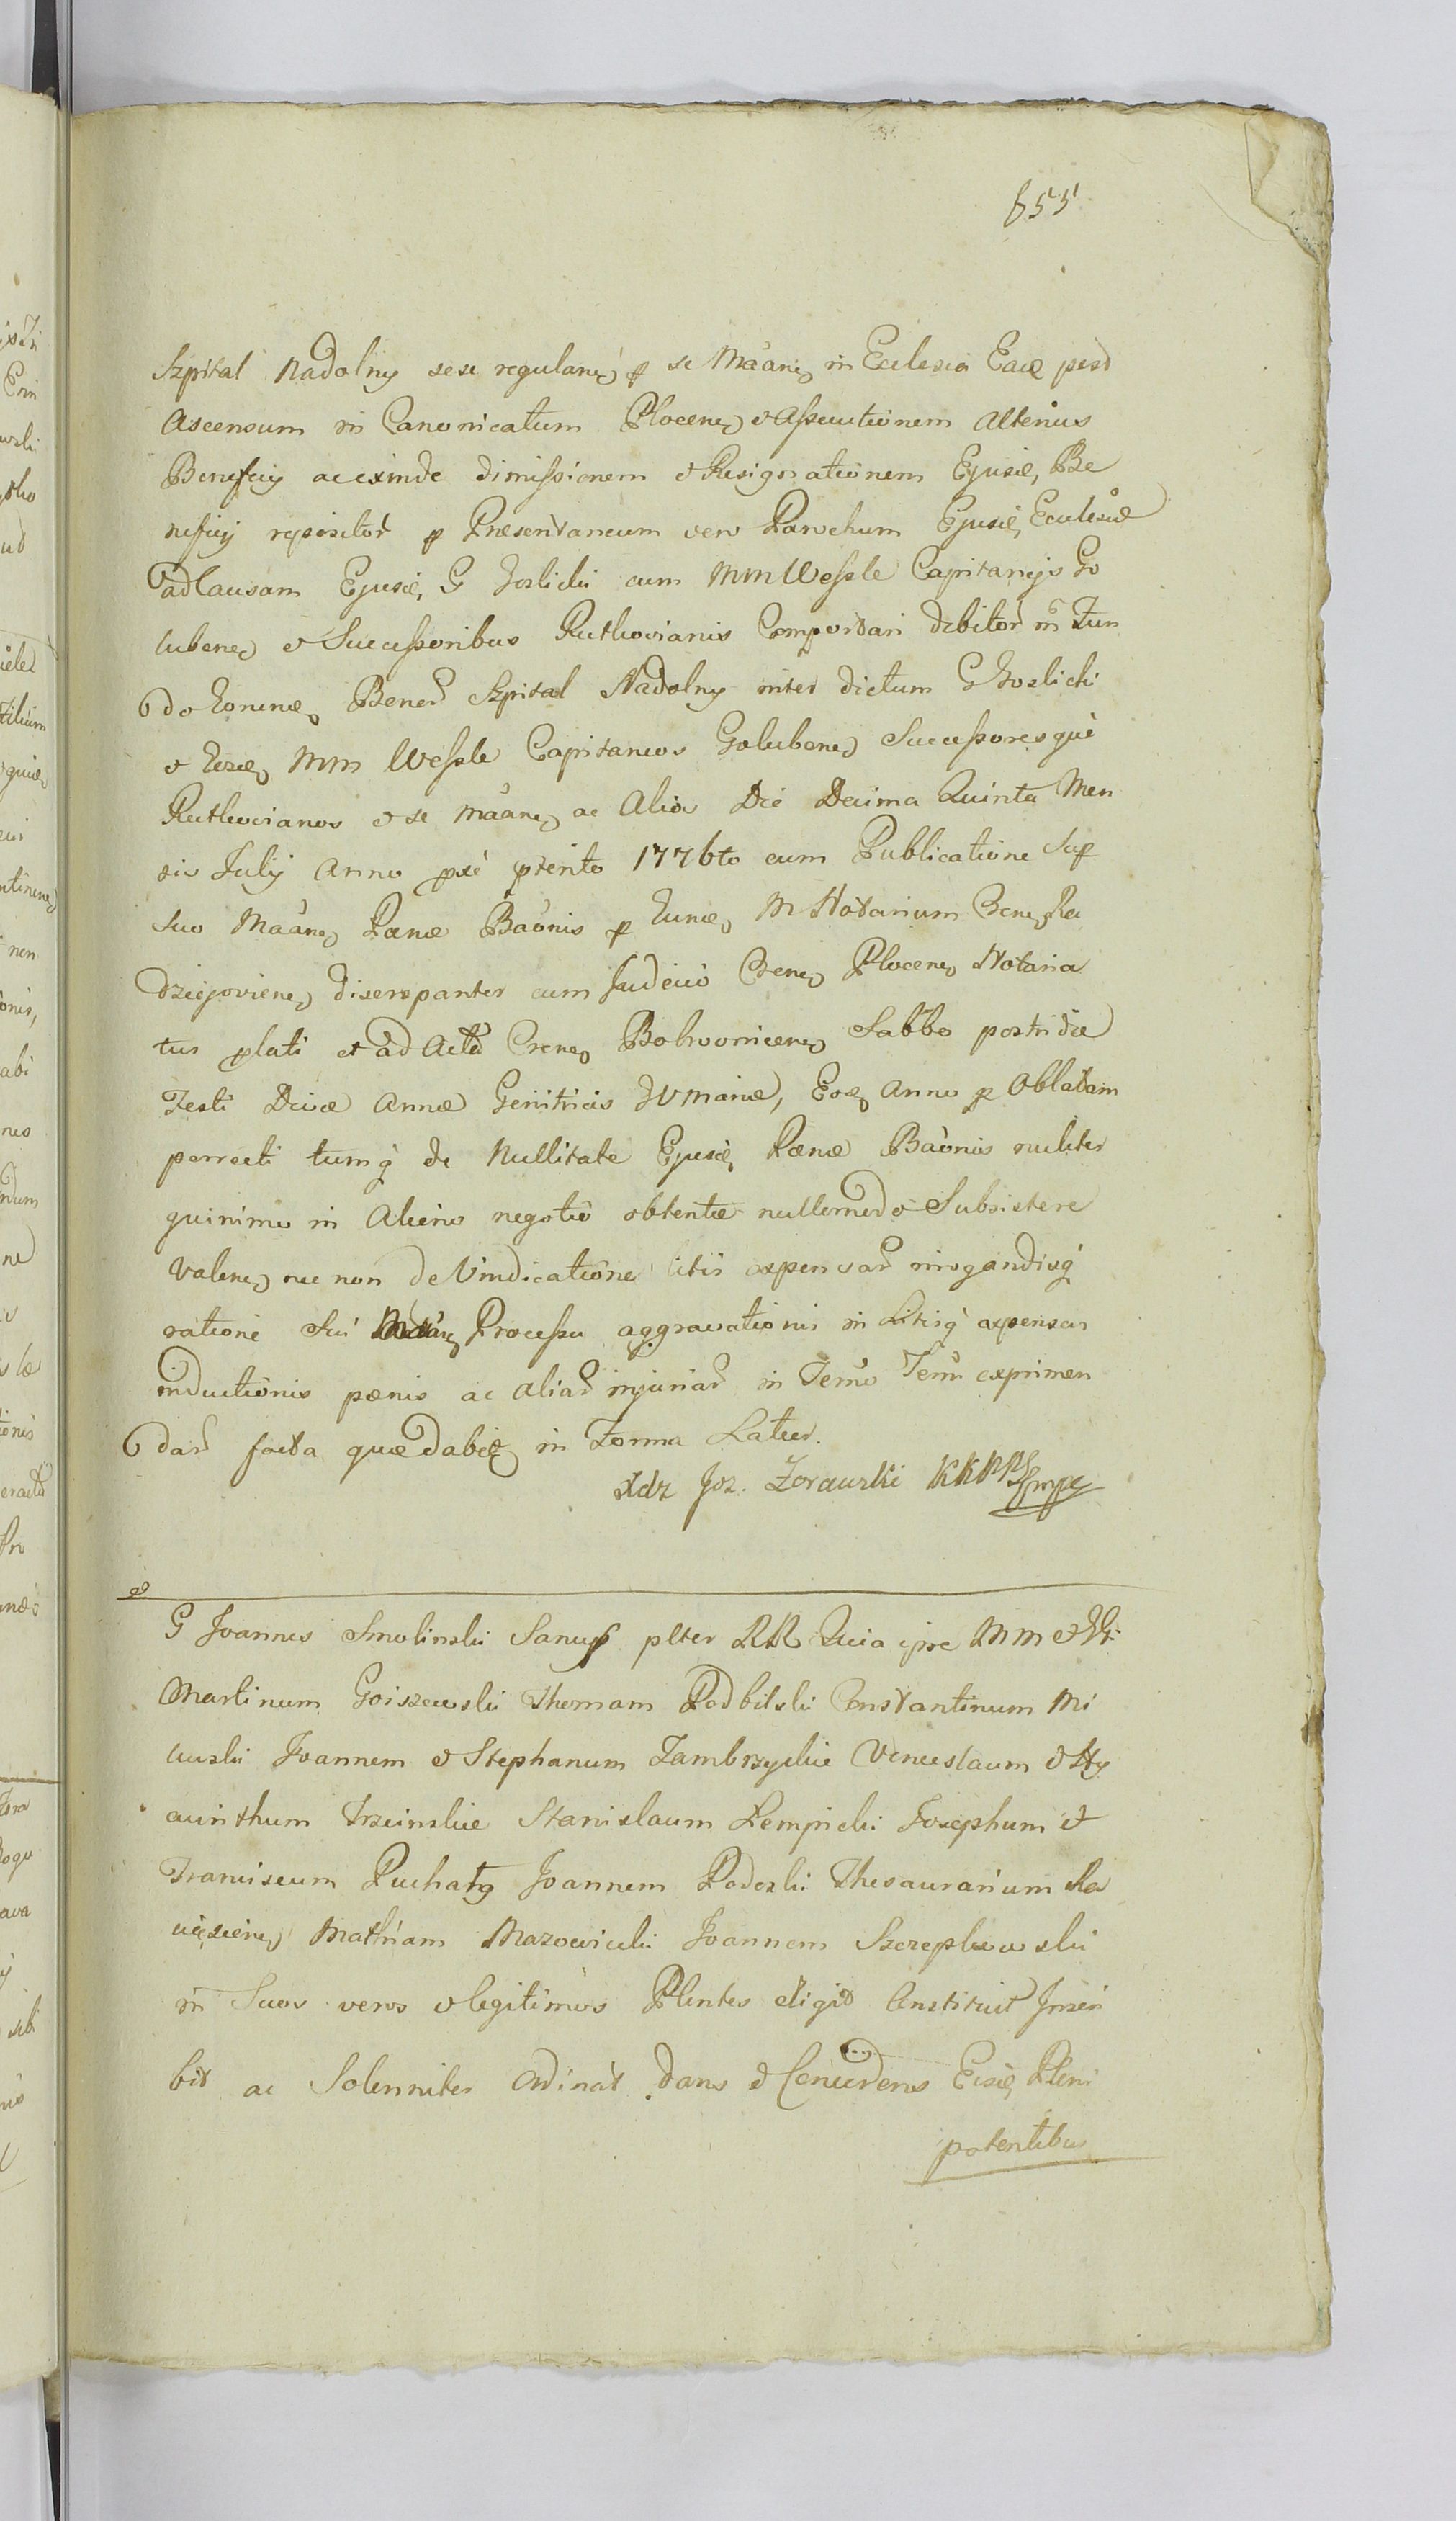 655
Szpital Nadolny sese regulanẽ p se Maane in Ecclesia Eadẽ post
Ascensum in Canonicatum Plocenẽ & Assecutionem Alterius
Beneficij ac exinde dimissionem & Resignationem Ejusdẽ Be
neficij repositor p Præsentaneum vero Parochum Ejusdẽ Ecclesiæ
ad Causam Ejusdẽ G Goslicki cum MM Wessle Capitaneijs Go
lubenẽ & Successoribus Ruthovianis Comportari debitor in Fun
do Bonor Szpital Nadolny inter dictum G Goslicki
& MM Wessle Capitaneos Golubenẽ Successoresque
Ruthovianos & se Maanẽ ac Alios Die Decima Quinta Men
sis Julij Anno pẽ pterito 1776to cum Publicatione Sup
suo Maanẽ Pœnæ Baonis p M Notarium Crenẽ Ra
dziejovienẽ discrepanter cum Judicio Crenẽ Plocenẽ Notaria
tus plati et ad Acta Crenẽ Bobrovnicenẽ Sabbo postridie
Festi Divæ Annæ Genitricis DV Mariæ, Eodẽ Anno p Oblatam
porrecti tumq de Nullitate Ejusdẽ Pœnæ Baonis nuliter
quinimo in Alieno negotio obtentæ nullomodo Subsistere
Valenẽ nec non de Vindicatione litis expensar irrogandisq
ratione Sui Maanẽ Processu aggravationis in Litisq expensas
inductionis pœnis ac aliar injuriar in Termo Termi exprimen
dar facta quædabit in Forma Latier.
Xdz Joz. Zorawski KKPP mpe
G Joannes Smolinski Sanus plter RR Quia ipse MM & GG
Martinum Goiszewski Thomam Podbilski Constantinum Mi
lewski Joannem & Stephanum Zambrzyckie Venceslaum & Hy
acinthum Trzcinskie Stanislaum Lempicki Josephum et
Franciscum Puchaty Joannem Podoski Thesaurarium Ra
ciążenẽ Mathiam Mazowiecki Joannem Szczeplewski
in Suos veros & legitimos Plentes eligit Constituit Inscri
bit ac Solenniter Ordinat dans & Concedens Eisdẽ Pleni
potentibus